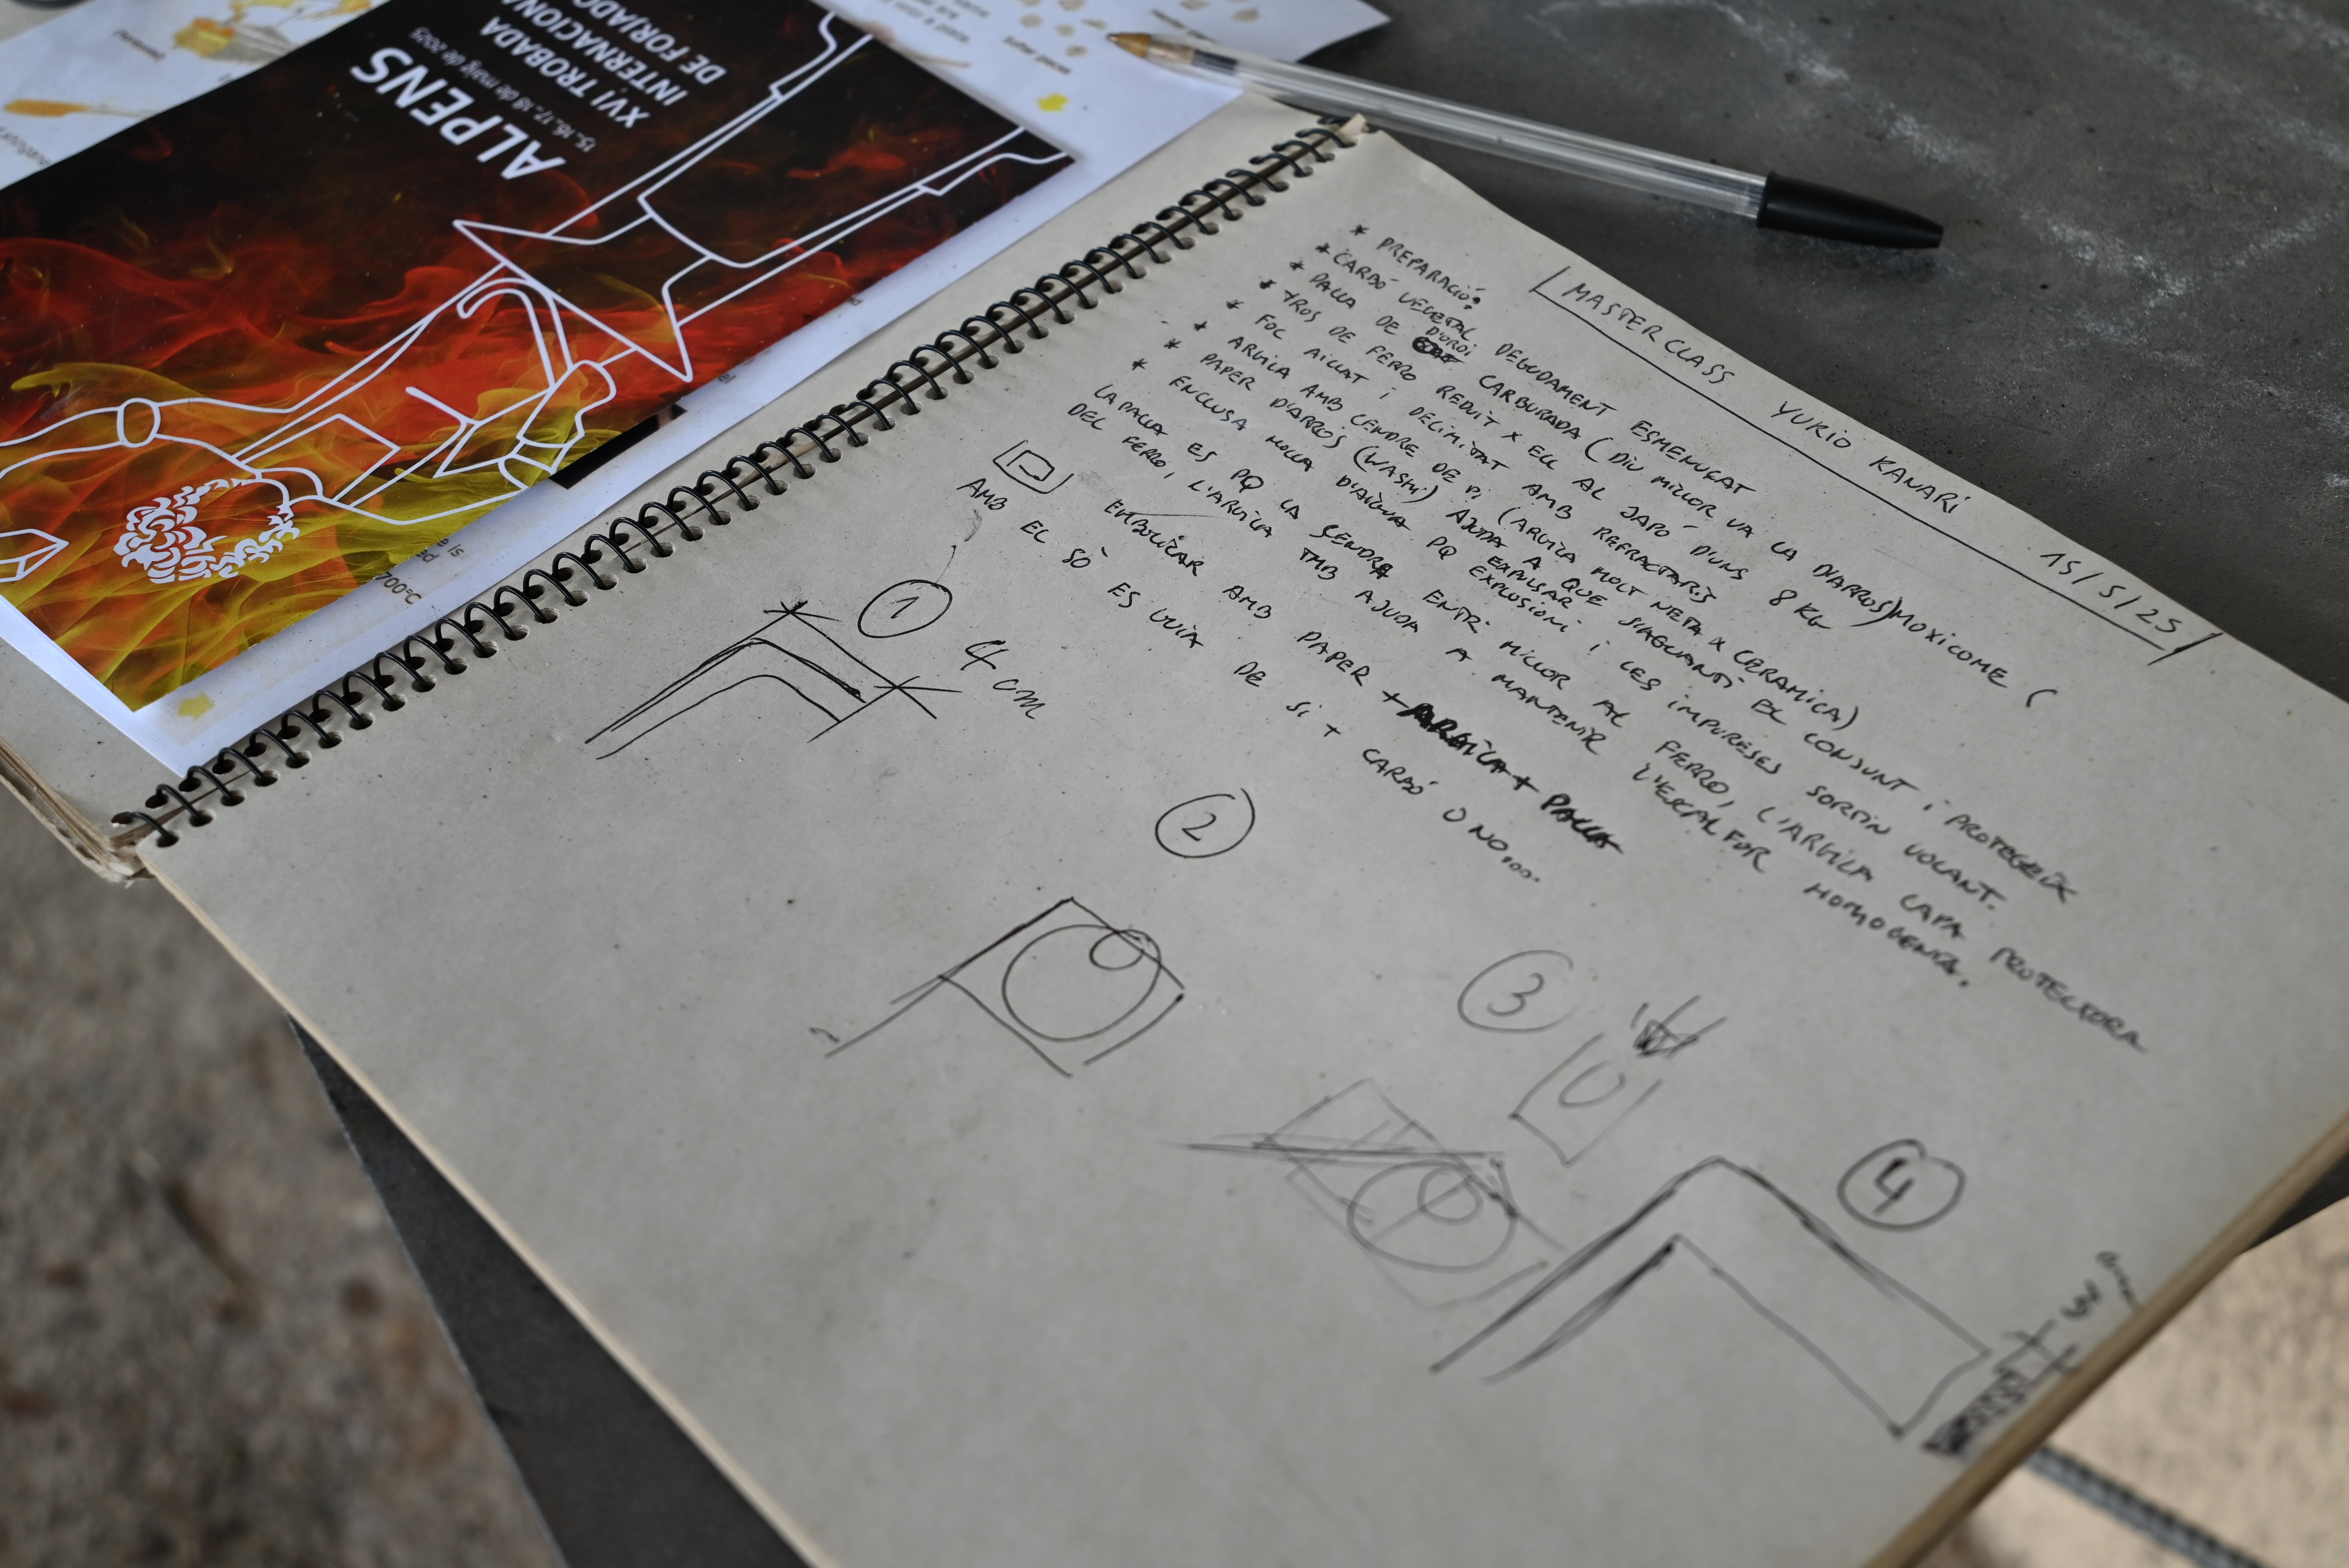 ALPENS
15, 16, 17, 18 de maig de 2025
XVI TROBADA
INTERNACIONA
DE FORJADO
700ºC
MASTERCLASS YURIO KANARI 15/5/25
* PREPARACIÓ:
* CARBÓ VEGETAL DEGUDAMENT ESMENUÇAT
* PALLA DE D'ORDI CARBURADA (DIU MILLOR VA LA D'ARROS) MOXICOME (
* TROS DE FERRO REDUÏT X ELL AL JAPÓ D'UNS 8 KG
* FOC AILLAT I DELIMITAT AMB REFRACTARIS
* ARGILA AMB CENDRE DE PI (ARGILA MOLT NETA X CERAMICA)
* PAPER D'ARRÒS (WASHI) AJUDA A QUE S'AGUANTI EL CONJUNT I PROTEGEIX
* ENCLUSA MOLLA D'AIGUA PQ EXPULSAR EXPLOSIONI I LES IMPURESES SORTIN VOLANT.
LA PALLA ES PQ LA CENDRA ENTRI MILLOR AL FERRO, L'ARGILA CAPA PROTECTORA
DEL FERRO, L'ARGILA TMB AJUDA A MANTENIR L'ESCALFOR HOMOGENIA.
EMBOLICAR AMB PAPER + ARGILA + PALLA
AMB EL SÒ ES GUIA DE SI + CARBÓ O NO....
1
4 cm
2
3
4